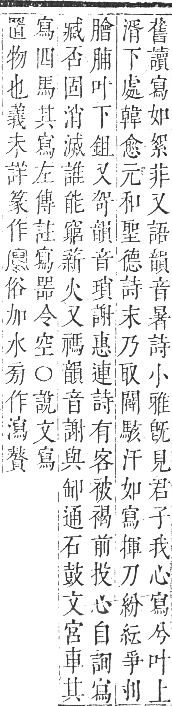 舊讀寫如絮非又語韻音暑詩小雅旣見君子我心寫兮叶上
湑下處韓愈元和聖德詩末乃取闢駭汗如寫揮刀紛紜爭刌
膾脯叶下鉏又智韻音瑣謝惠連詩有客被褐前投心自詢寫
臧否固消滅誰能窮薪火又禡韻音謝與卸通石鼓文宮車其
寫四馬其寫左傳註寫器令空○說文寫
置物也義未詳篆作𡩀俗加水旁作瀉贅